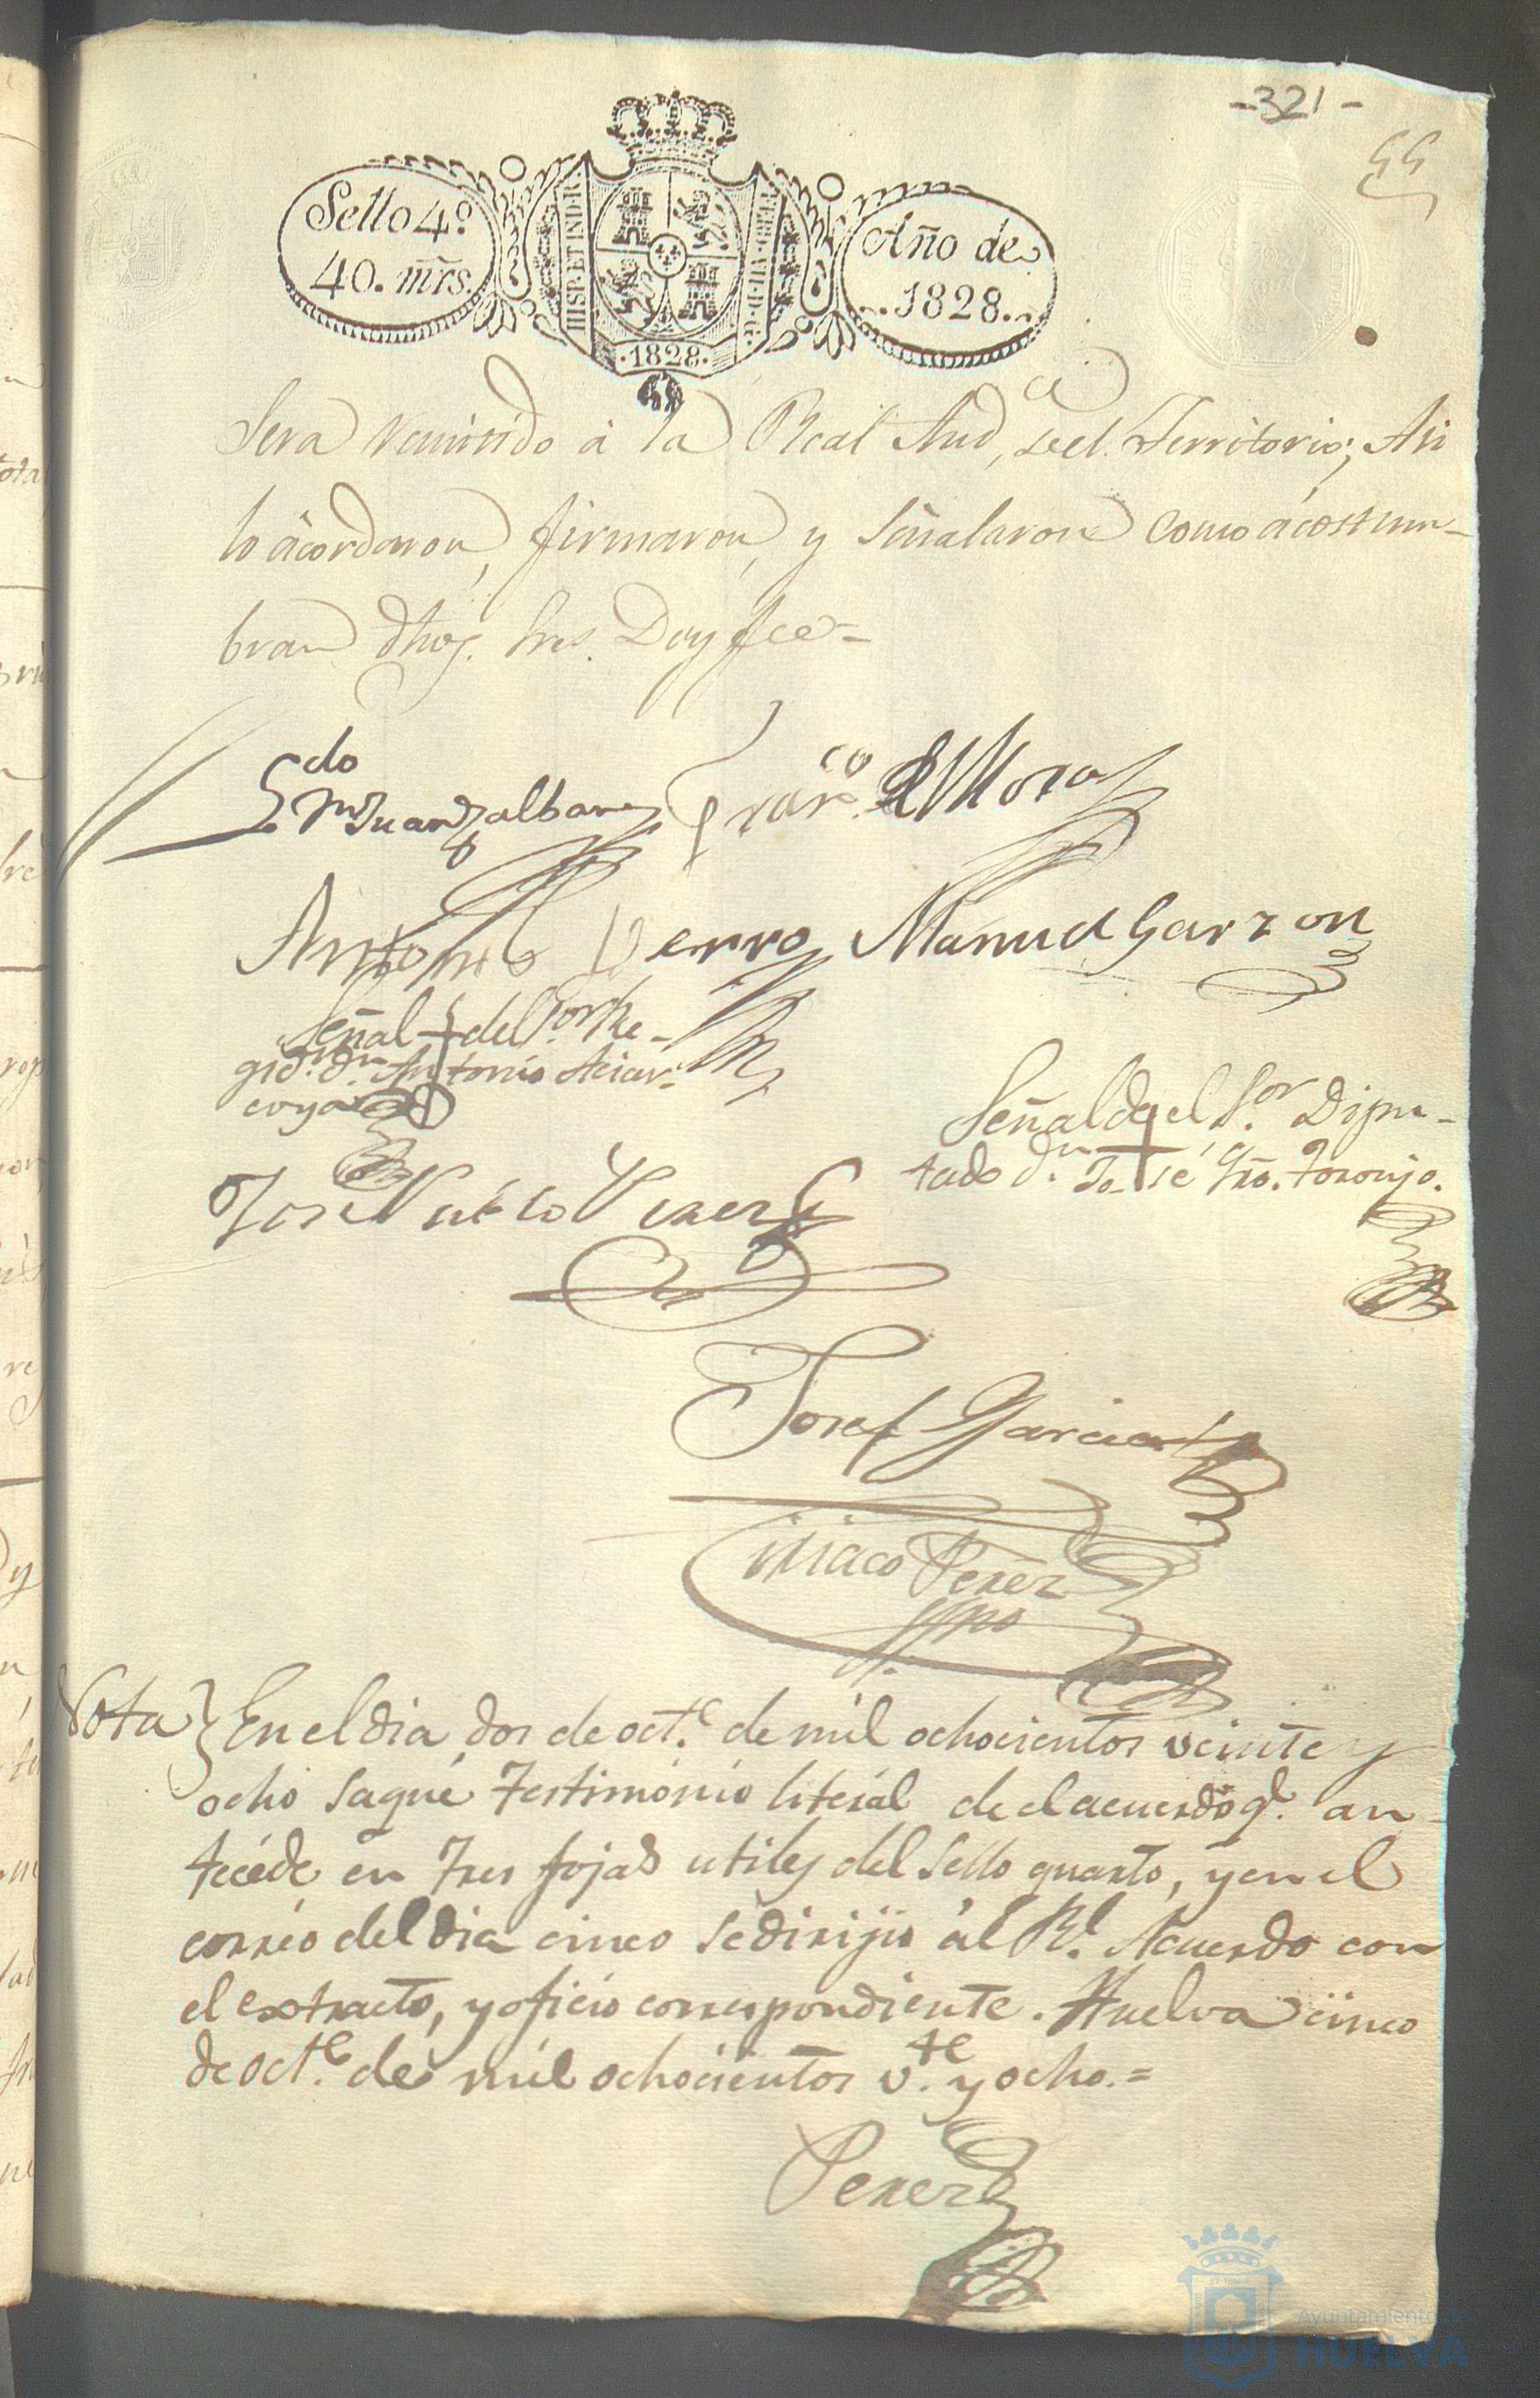 -321-
55
Sello 4º
40. mrs.
HISP. ET IND. R.
1828.
Año de
1828.
Sera remitido à la Real Aud,ª del Territorio; Asi
lo àcordaron, firmaron, y señalaron como àcostum-
bran dhos. Sres. Doy fee=
Ldo
Juan
Franco. de Mora
Antonio Verro Manuel Garzon
Señal + del Sor. Re-
gidr. dn. Antonio
Señal de el Sor. Dipu-
tado dn. José Toronjo.
Jose Perez
Josef Garcia
Ciriaco Perez
Nota } En el dia dos de octe. de mil ochocientos veinte y
ocho saqué Testimónio literál de el acuerdo q. an-
tecéde en tres fojas utiles del sello quarto, y en el
corréo del dia cinco se dirijió ál Rl. Acuerdo con
el extracto, y oficio correspondiente. Huelva cinco
de octe. de mil ochocientos vte. y ocho.=
Perez
Ayuntamiento de
HUELVA